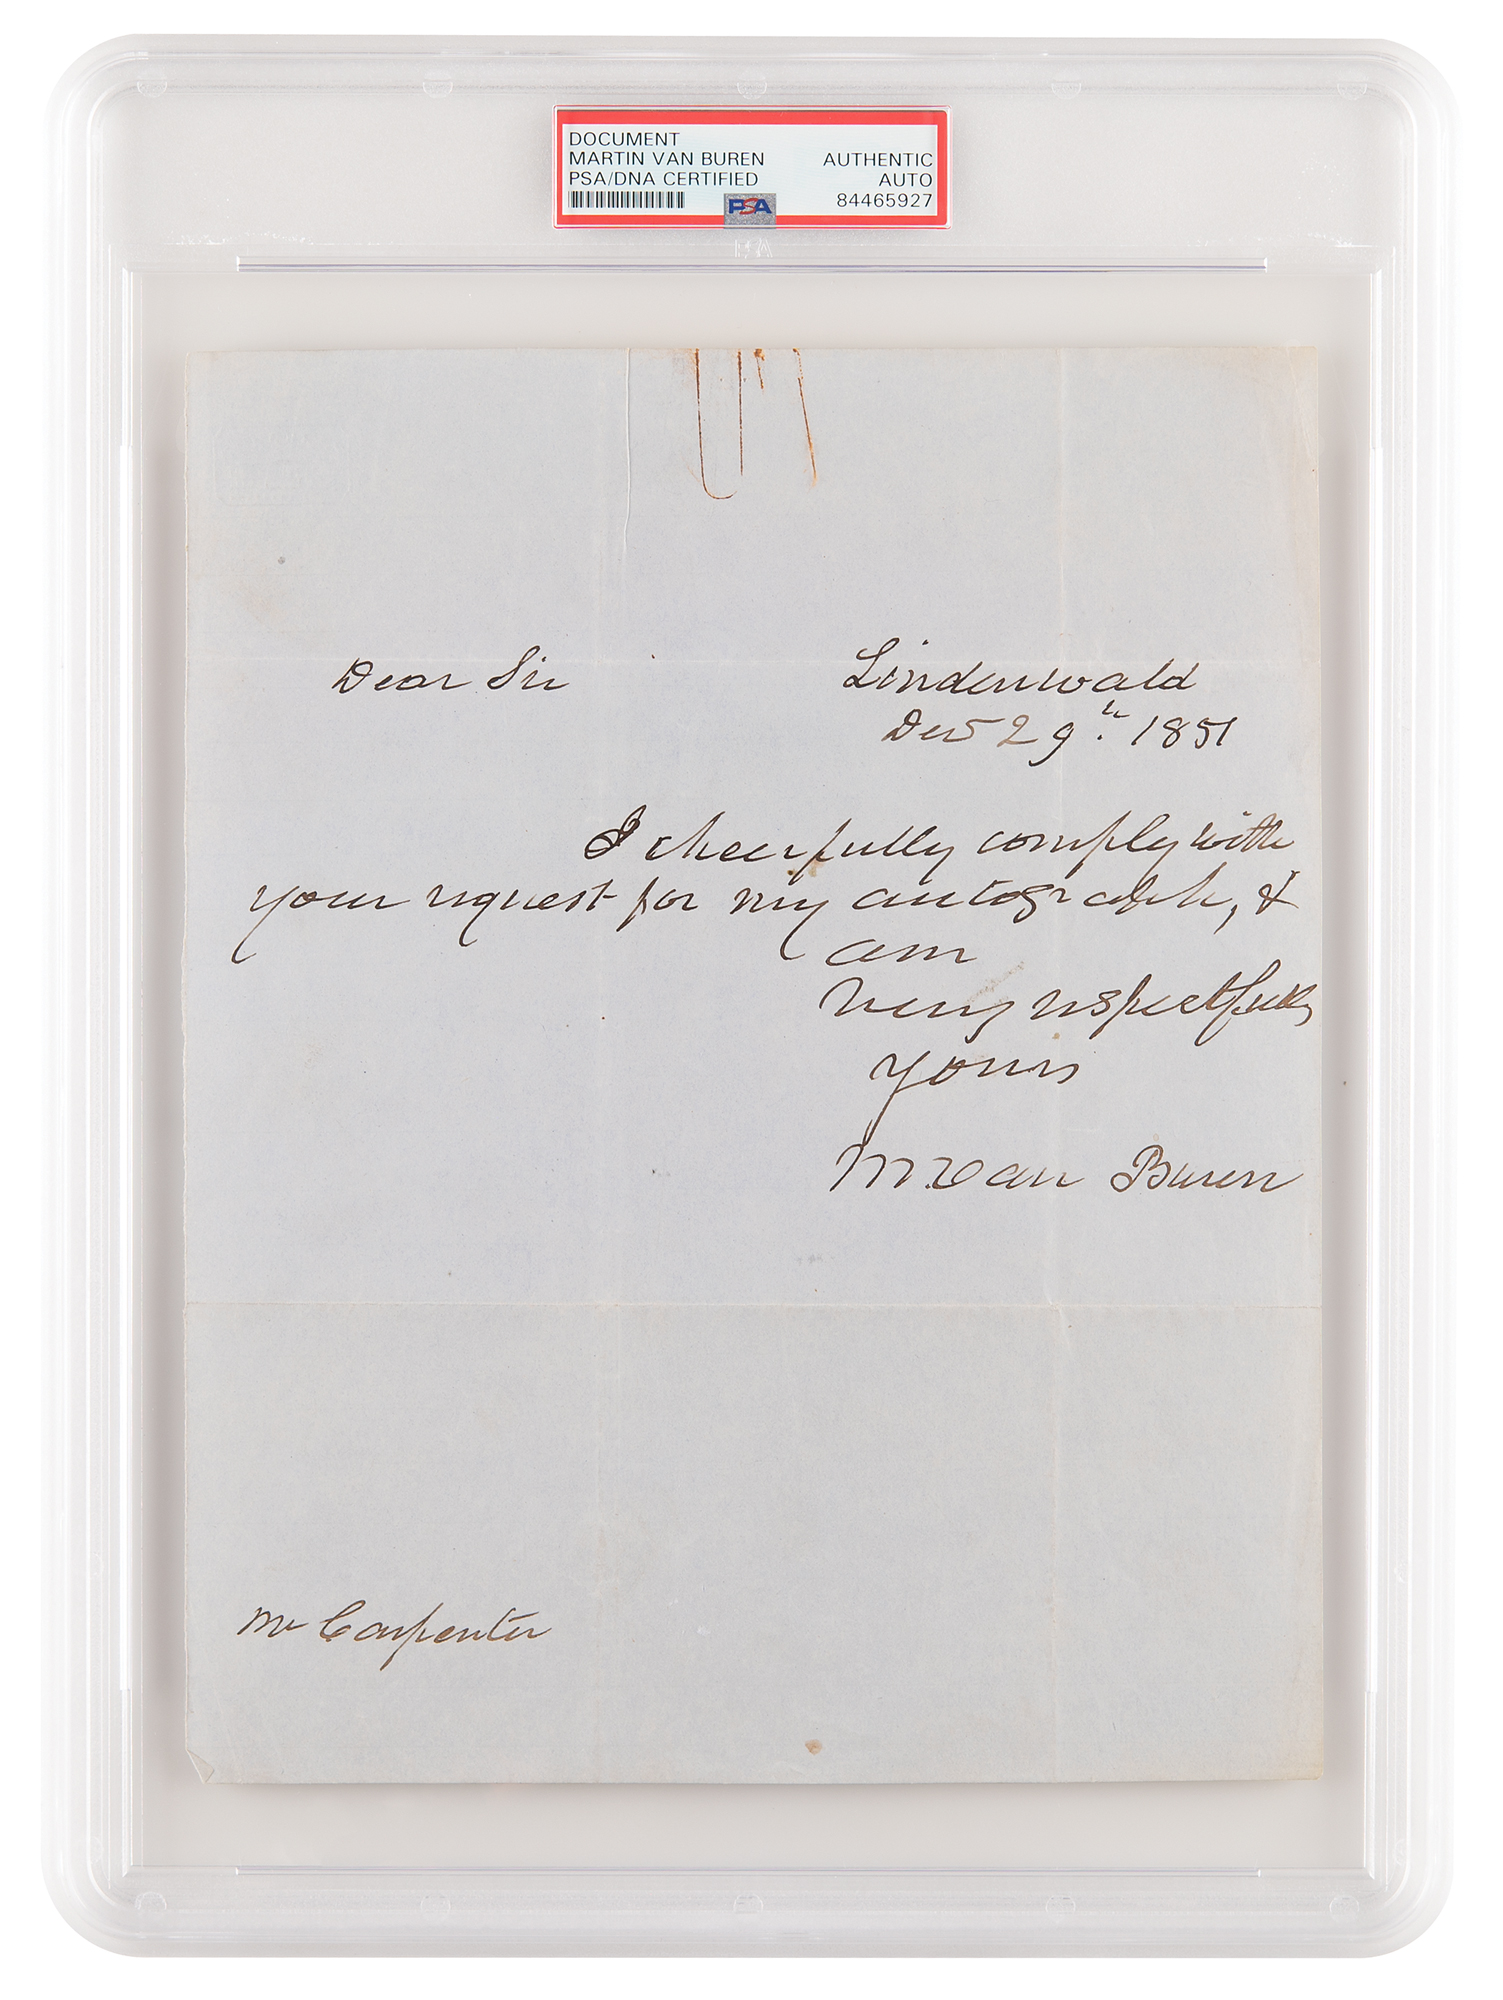 DOCUMENT
MARTIN VAN BUREN AUTHENTIC
PSA/DNA CERTIFIED AUTO
PSA 84465927
PSA
Dear Sir Lindenwald
Dec 29th. 1851
I cheerfully comply with
your request for my autograph, &
am
very respectfully
yours
M. Van Buren
Mr Carpenter